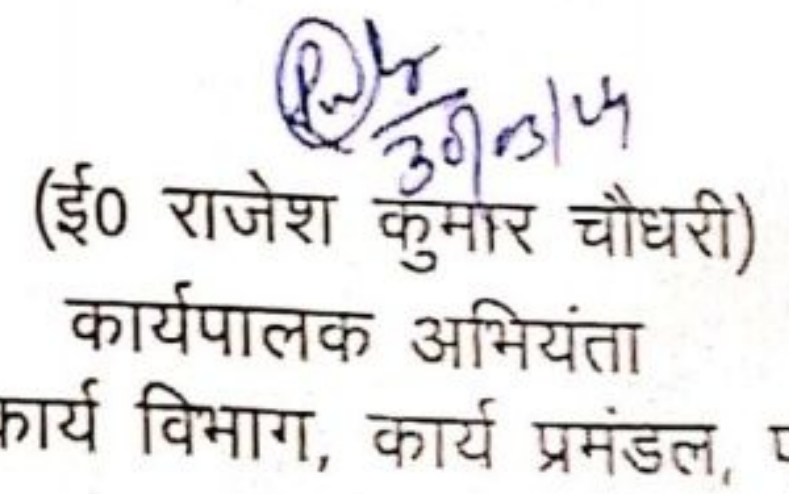 (ई0 राजेश कुमार चौधरी)
कार्यपालक अभियंता
कार्य विभाग, कार्य प्रमंडल,